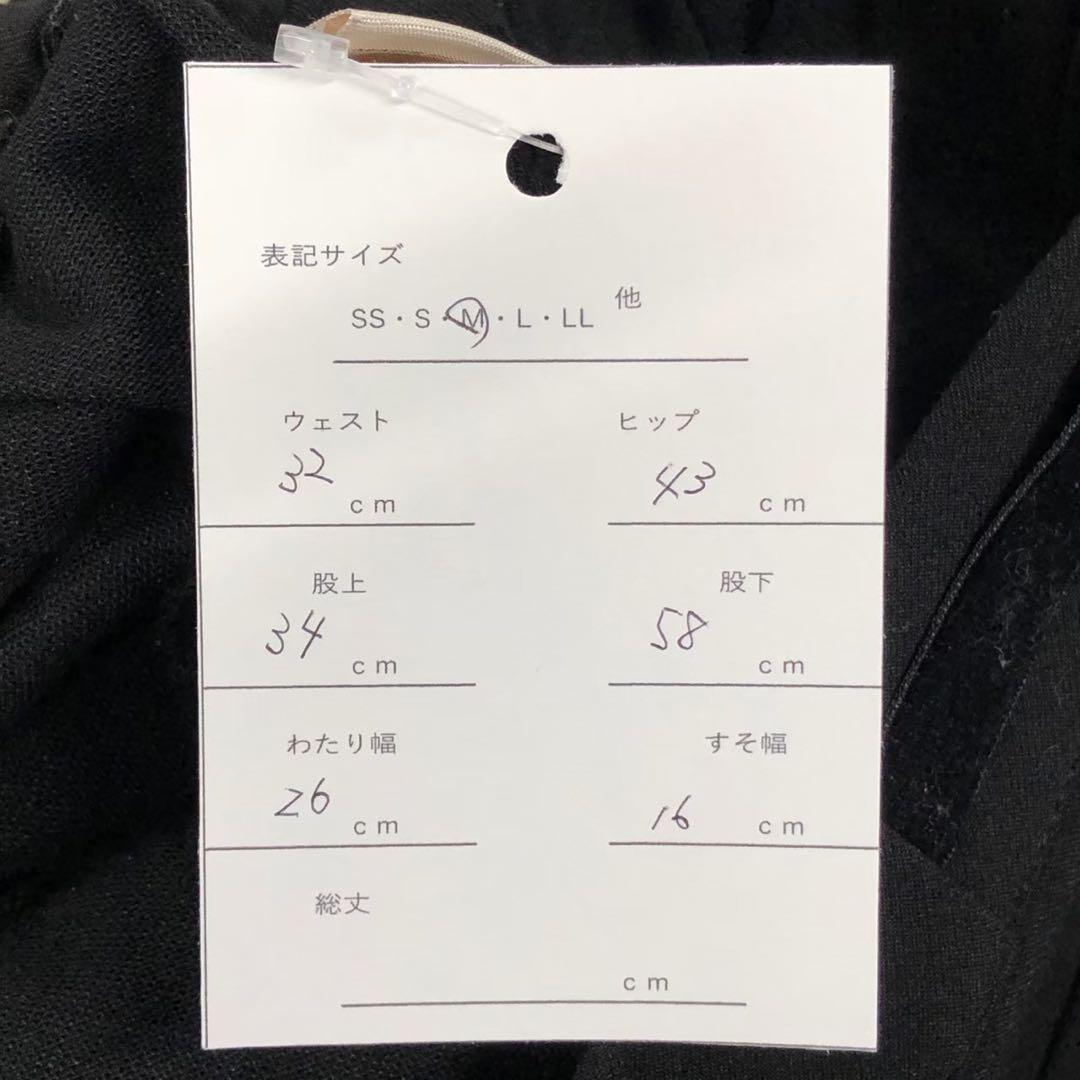 表記サイズ
SS・S・M・L・LL 他
ウェスト ヒップ
32 cm 43 cm
股上 股下
34 cm 58 cm
わたり幅 すそ幅
26 cm 16 cm
総丈
cm